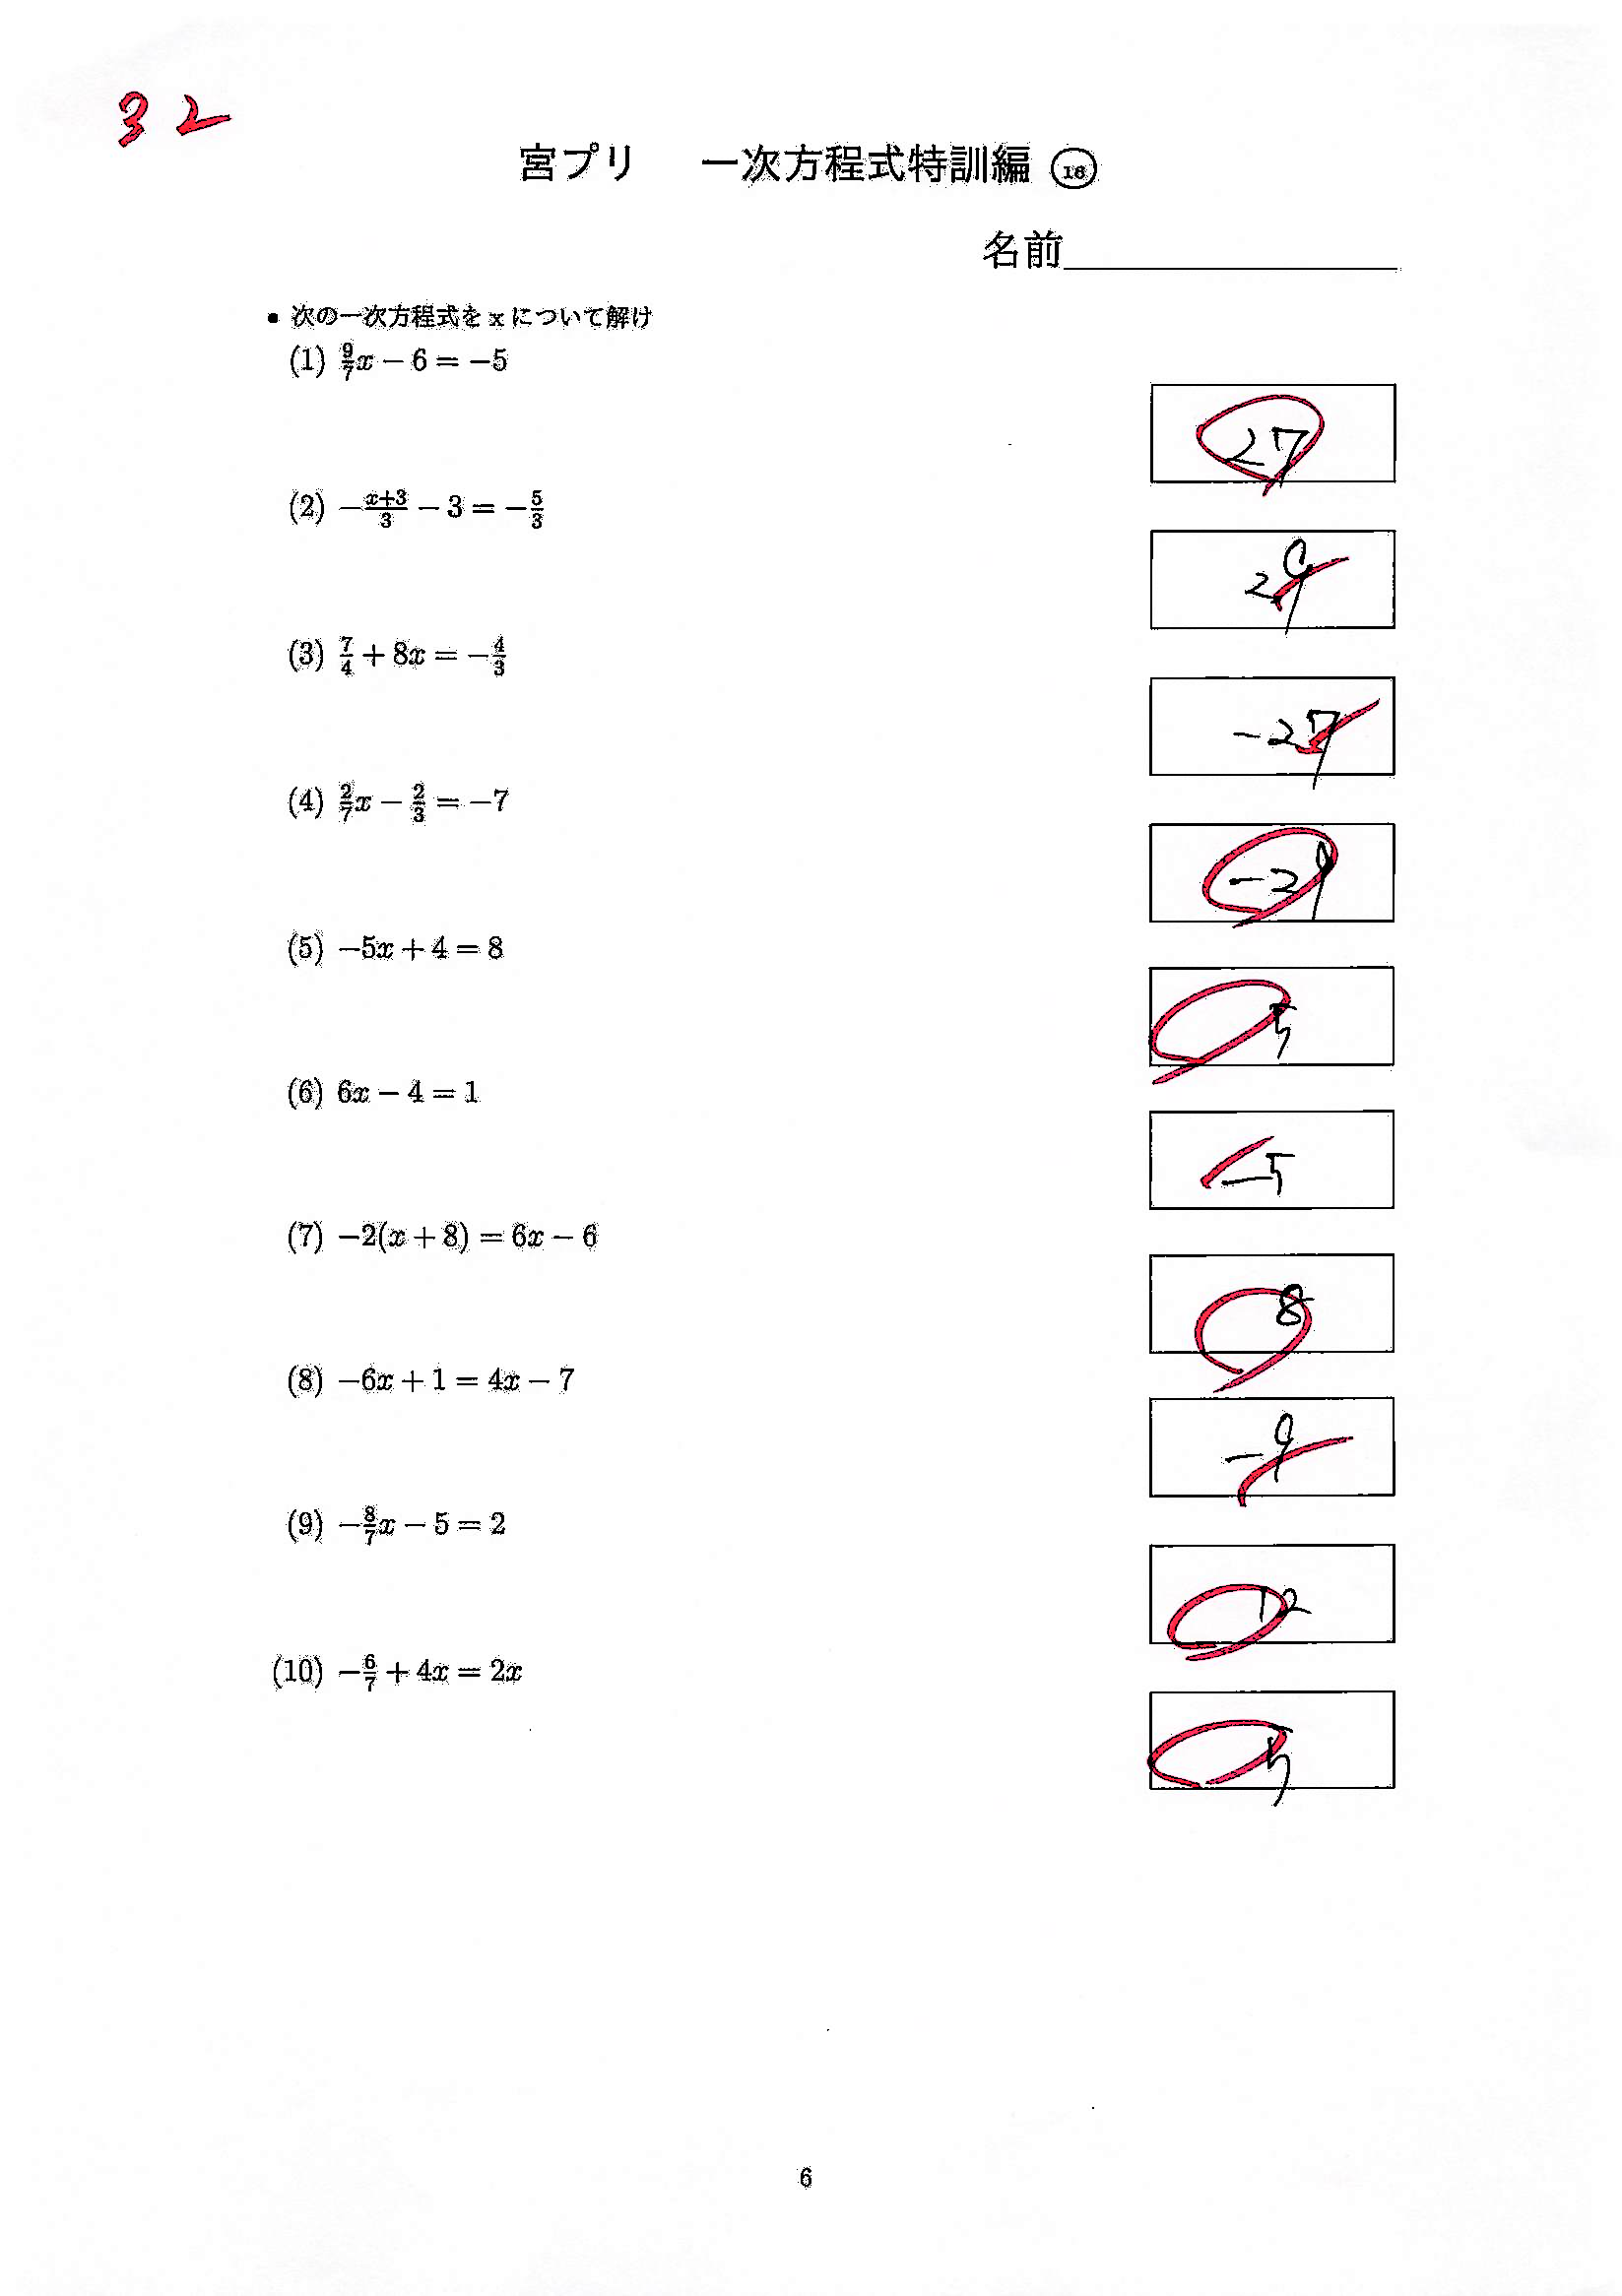 32
宮プリ 一次方程式特訓編 18
名前
• 次の一次方程式を x について解け
(1) 9/7 x − 6 = −5
27
(2) −(x+3)/3 − 3 = −5/3
29
(3) 7/4 + 8x = −4/3
−27
(4) 2/7 x − 2/3 = −7
−29
(5) −5x + 4 = 8
5
(6) 6x − 4 = 1
−5
(7) −2(x + 8) = 6x − 6
8
(8) −6x + 1 = 4x − 7
−9
(9) −8/7 x − 5 = 2
12
(10) −6/7 + 4x = 2x
5
6